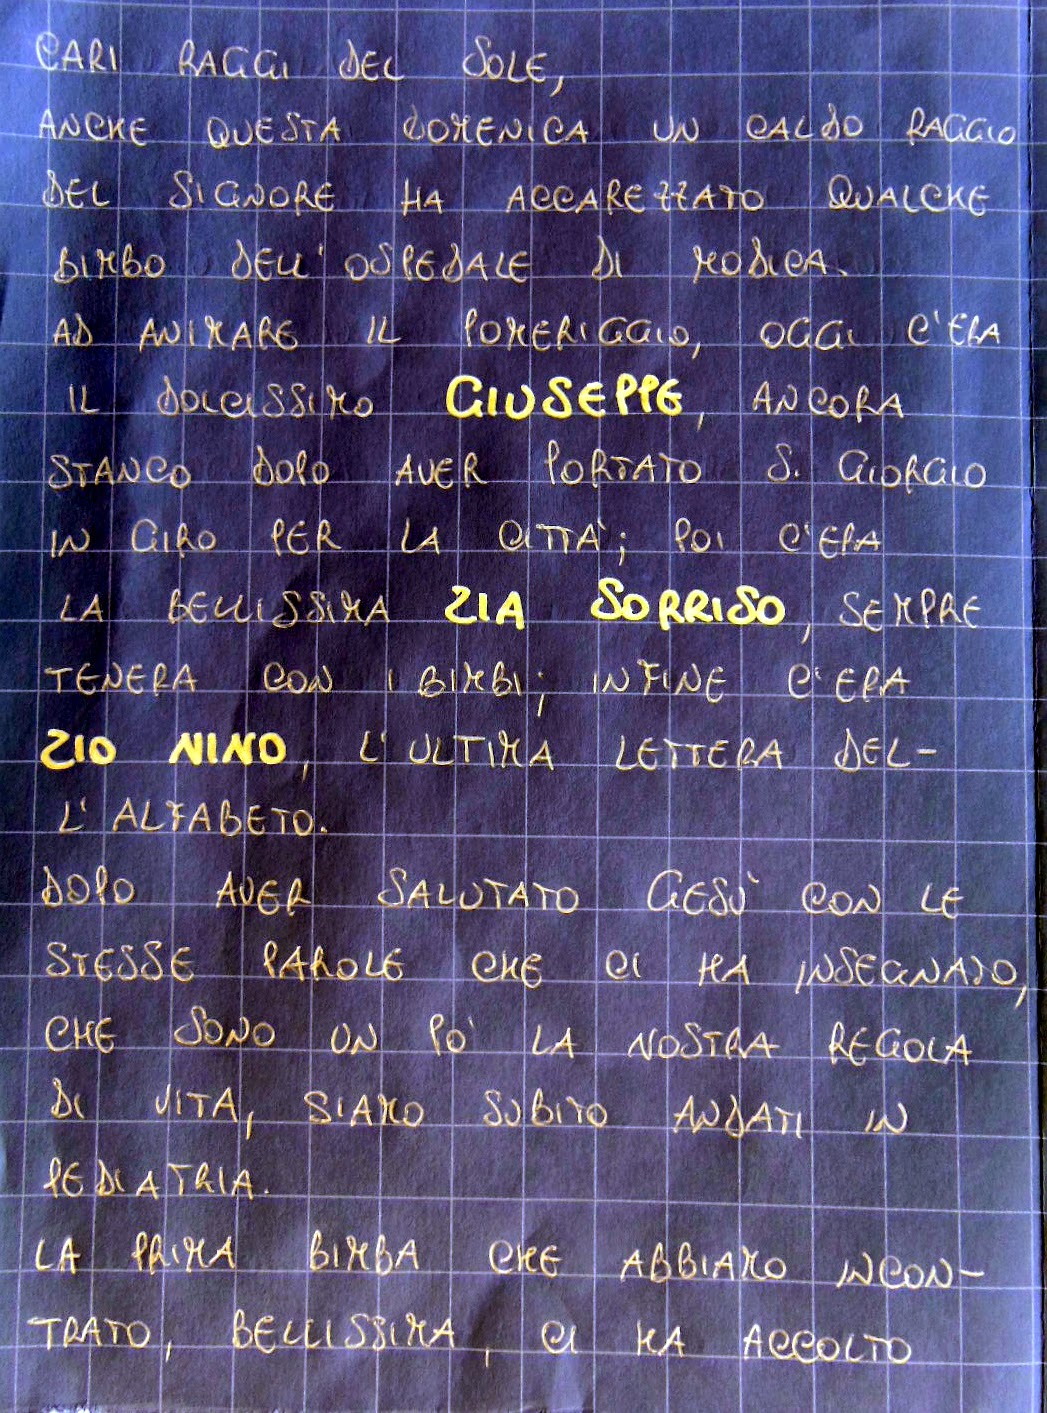 CARI RAGGI DEL SOLE,
ANCHE QUESTA DOMENICA UN CALDO RAGGIO
DEL SIGNORE HA ACCAREZZATO QUALCHE
BIMBO DELL'OSPEDALE DI MODICA.
AD ANIMARE IL POMERIGGIO, OGGI C'ERA
IL DOLCISSIMO GIUSEPPE, ANCORA
STANCO DOPO AVER PORTATO S. GIORGIO
IN GIRO PER LA CITTÀ; POI C'ERA
LA BELLISSIMA ZIA SORRISO, SEMPRE
TENERA CON I BIMBI; INFINE C'ERA
ZIO NINO, L'ULTIMA LETTERA DEL-
L'ALFABETO.
DOPO AVER SALUTATO GESÙ CON LE
STESSE PAROLE CHE CI HA INSEGNATO,
CHE SONO UN PO' LA NOSTRA REGOLA
DI VITA, SIAMO SUBITO ANDATI IN
PEDIATRIA.
LA PRIMA BIMBA CHE ABBIAMO INCON-
TRATO, BELLISSIMA, CI HA ACCOLTO